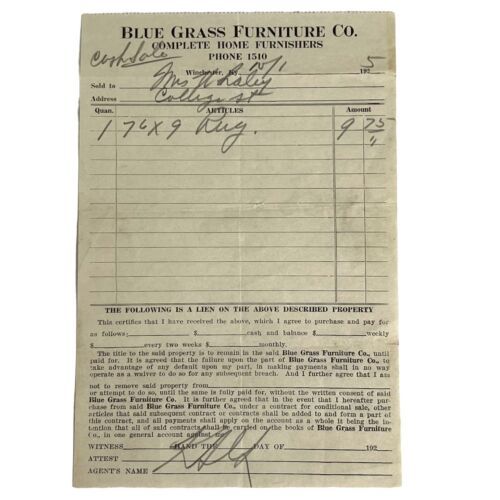 BLUE GRASS FURNITURE CO.
COMPLETE HOME FURNISHERS
PHONE 1510
Cash Sale
Winchester, Ky. 10/1 1925
Sold to Mrs Haley
Address College St
Quan. ARTICLES Amount
1 7⁶ X 9 Rug. 9 75
"
THE FOLLOWING IS A LIEN ON THE ABOVE DESCRIBED PROPERTY
This certifies that I have received the above, which I agree to purchase and pay for
as follows: $ cash and balance $ weekly
$ every two weeks $ monthly.
The title to the said property is to remain in the said Blue Grass Furniture Co., until
paid for. It is agreed that the failure upon the part of Blue Grass Furniture Co., to
take advantage of any default upon my part, in making payments shall in no way
operate as a waiver to do so for any subsequent breach. And I further agree that I am
not to remove said property from
or attempt to do so, until the same is fully paid for, without the written consent of said
Blue Grass Furniture Co. It is further agreed that in the event that I hereafter pur-
chase from said Blue Grass Furniture Co., under a contract for conditional sale, other
articles that said subsequent contract or contracts shall be added to and form a part of
this contract, and all payments shall apply on the account as a whole it being the in-
tention that all of said contracts shall be carried on the books of Blue Grass Furniture
Co., in one general account against me.
WITNESS HAND THE DAY OF 192
ATTEST
AGENT'S NAME